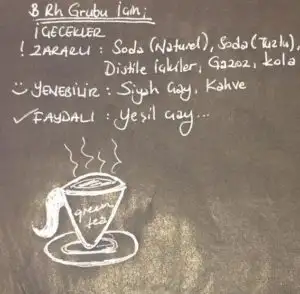 B Rh Grubu İçin;
İÇECEKLER
! ZARARLI : Soda (Naturel), Soda (Tuzlu),
Distile içkiler, Gazoz, kola
YENEBİLİR : Siyah çay, Kahve
✓ FAYDALI : Yeşil çay...
green
tea